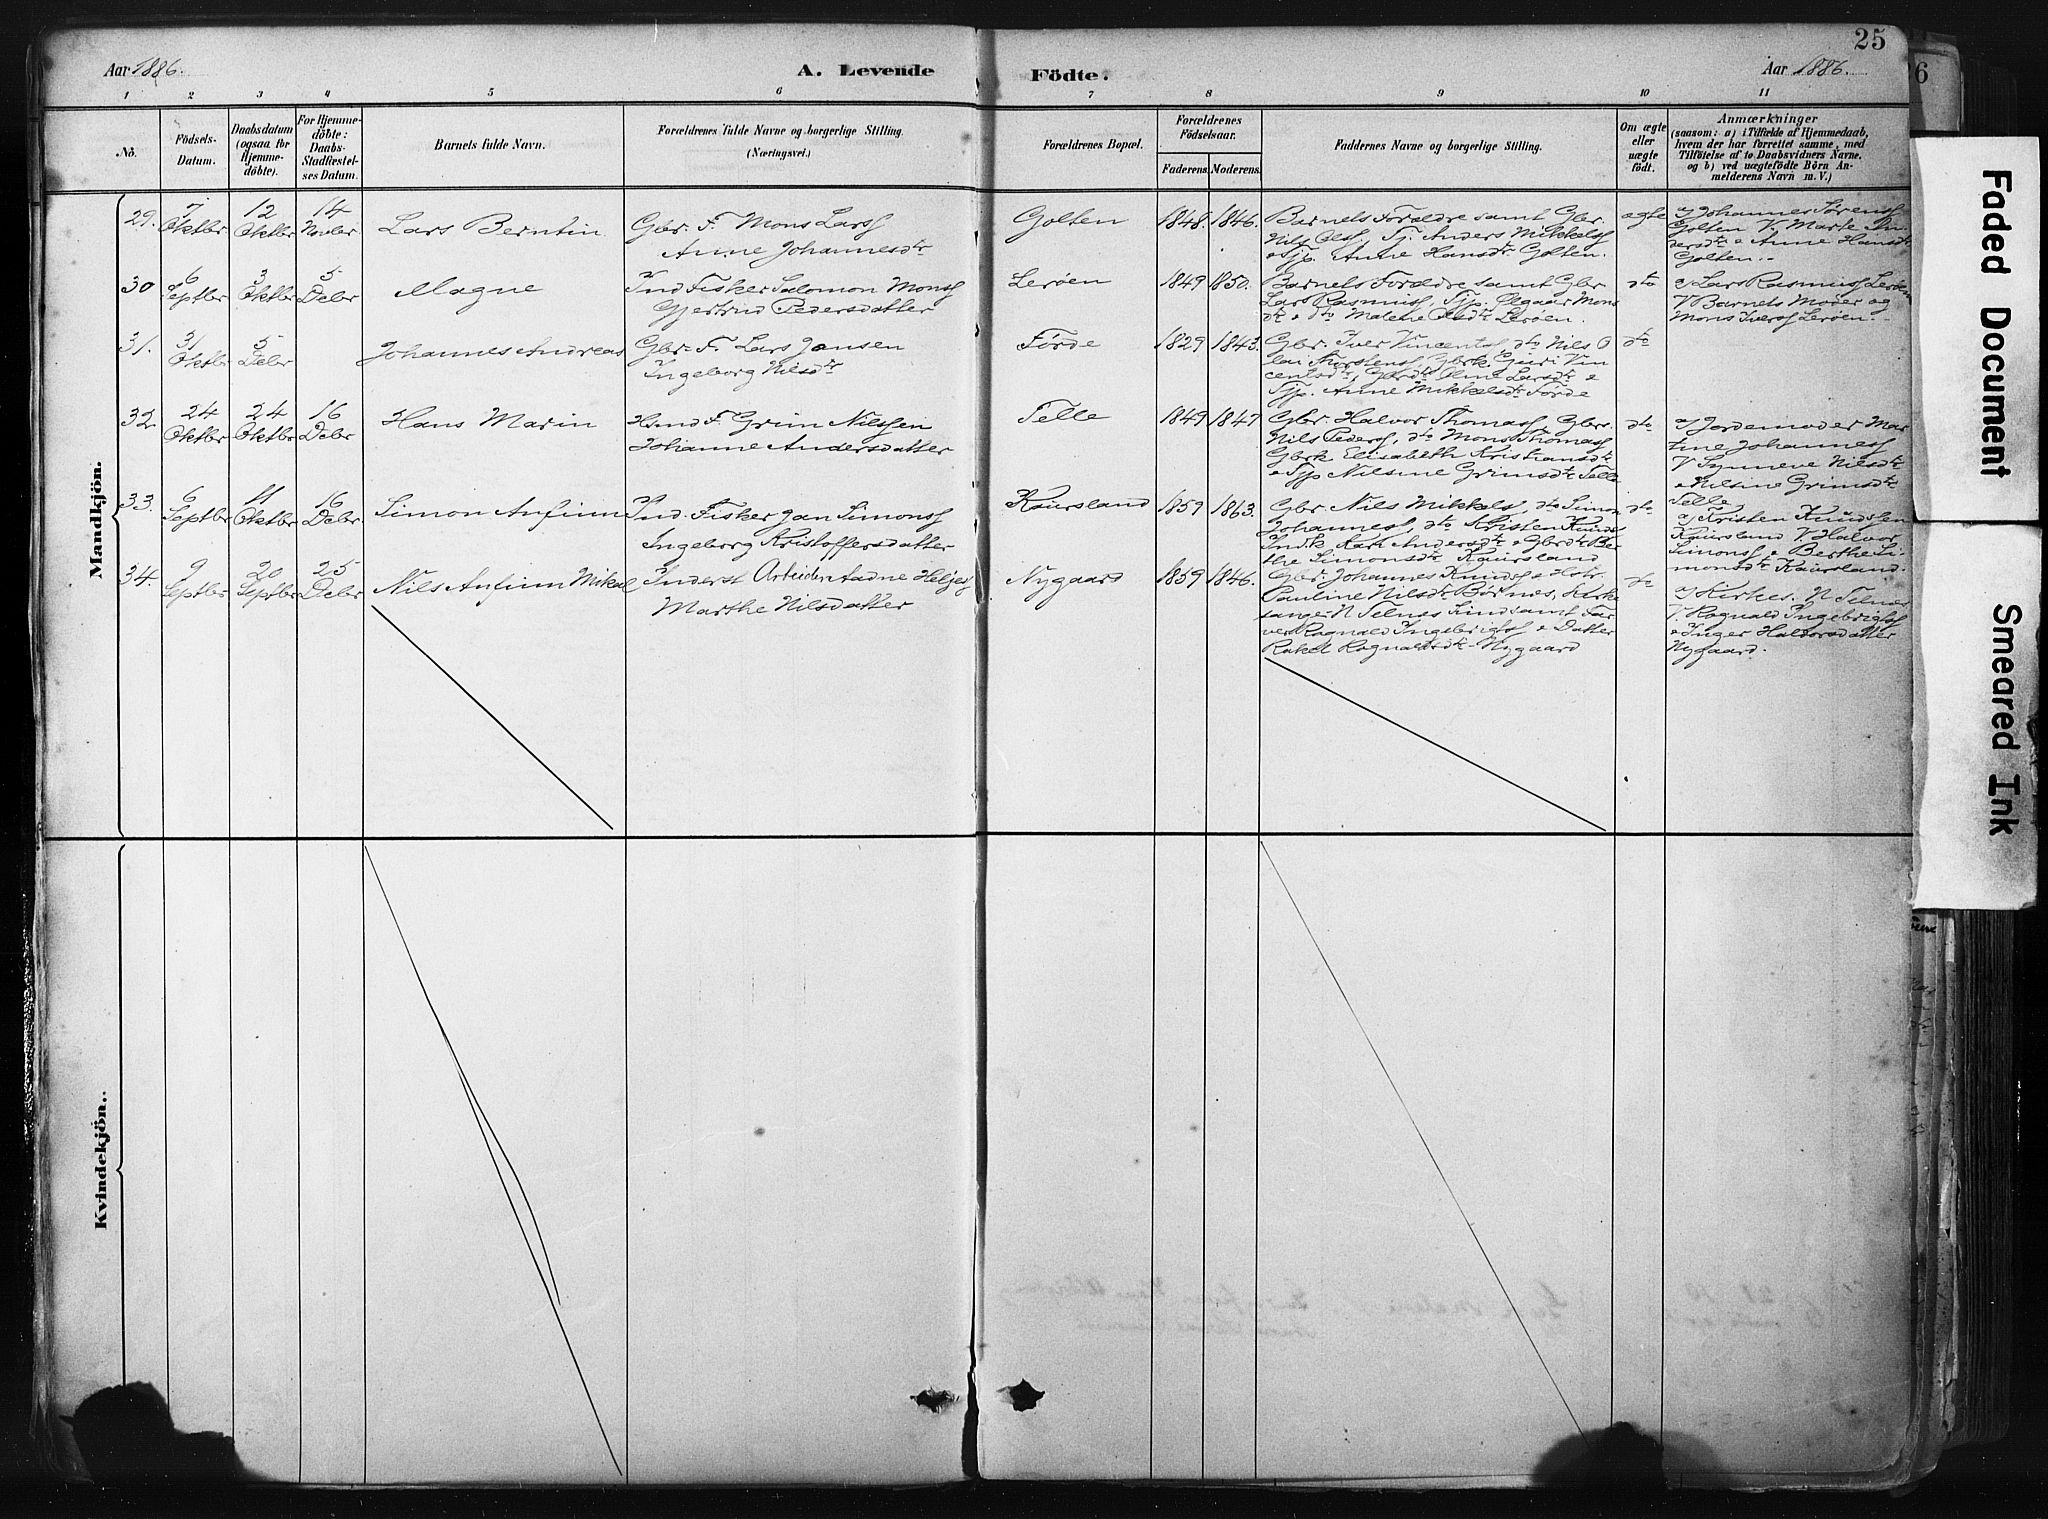 25
Aar 1886.
A. Levende Födte.
Aar 1886.
6
1 2 3 4 5 6 7 8 9 10 11
No.
Födsels-
Datum.
Daabsdatum
(ogsaa for
Hjemme-
döbte).
For Hjemme-
döbte:
Daabs-
Stadfæstel-
ses Datum.
Barnets fulde Navn.
Forældrenes fulde Navne og borgerlige Stilling.
(Næringsvei.)
Forældrenes Bopæl.
Forældrenes
Födselsaar.
Faderens. Moderens.
Faddernes Navne og borgerlige Stilling.
Om ægte
eller
uægte
født.
Anmærkninger
(saasom: a) i Tilfælde af Hjemmedaab,
hvem der har forrettet samme, med
Tilföielse af to Daabsvidners Navne,
og b) ved uægtefödte Börn An-
melderens Navn m. V.)
Mandkjön.
29.
7
Oktbr
12
Oktbr
14
Novbr
Lars Berntin
Gbr. F. Mons Larss
Anne Johannesdtr
Golten
1848. 1846.
Barnets Forældre samt Gbr.
Nils Olss, Tj. Anders Mikkels
Tjp. Anne Hansdtr Golten.
ægte
a) Johannes Sørens
Golten V. Marte
dersdtr & Anne Hansdtr
Golten.
30
6
Septbr
3
Oktbr
5
Debr
Magne
Ind Fisker Salomon Monss
Gjertrud Pedersdatter
Lerøen
1849 1850.
Barnets Forældre samt Gbr
Lars Rasmuss, Tjp. Olgaar Mons
dtr & dto Malene Olsdtr Lerøen.
dto
a) Lars Rasmuss Lerøen
V Barnets Moder og
Mons Iverss Lerøen.
31.
31
Oktbr
5
Debr
Johannes Andreas
Gbr. F. Lars Jansen
Ingeborg Nilsdtr
Førde
1829 1843.
Gbr. Iver Vincents, dto Nils O
lai Thorstens, Gbrk Guri Vin
centsdtr, Gbrdtr Oline Larsdtr &
Tjp. Anne Mikkelsdtr Førde
dto
32
24
Oktbr
24
Oktbr
16
Debr
Hans Marin
Hsmd F. Grim Nilssen
Johanne Andersdatter
Telle
1849 1847
Gbr. Halvor Thomass, Gbrs.
Nils Peders, dto Mons Thomass
Gbrk Elisabeth Kristiansdtr
& Tjp Nilsine Grimsdtr Telle
dto
a) Jordemoder Mar
tine Johanness
V Synneve Nilsdtr
& Nilsine Grimsdtr
Telle
33.
6
Septbr
11
Oktbr
16
Debr
Simon Anfinn
Ind. Fisker Jan Simonss
Ingeborg Kristoffersdatter
Kaursland
1859 1863.
Gbr Nils Mikkels, dto Simon
Johanness, dto Kristen Knuds
Ind.k Kari Andersdtr & Gbrdtr Ber
the Simonsdtr Kaursland
dto
a) Kristen Knudsen
Kaursland V Halvor
Simons & Berthe Si
monsdtr Kaursland.
34.
9
Septbr
20
Septbr
25
Debr
Nils Anfinn Mikal
Inderst Arbeider Aadne Heljes
Marthe Nilsdatter
Nygaard
1859 1846.
Gbr. Johannes Knuds &
Pauline Nilsdtr Børnes, Kirke
sanger N Telnes Sund samt
Rognald Ingebrigts & Datter
Rakel Rognaldsdtr Nygaard
dto
a) Kirkes. N Telnes
V. Rognald Ingebrigts
& Inger Halvorsdatter
Nygaard.
Kvindekjön.
Faded Document
Smeared Ink